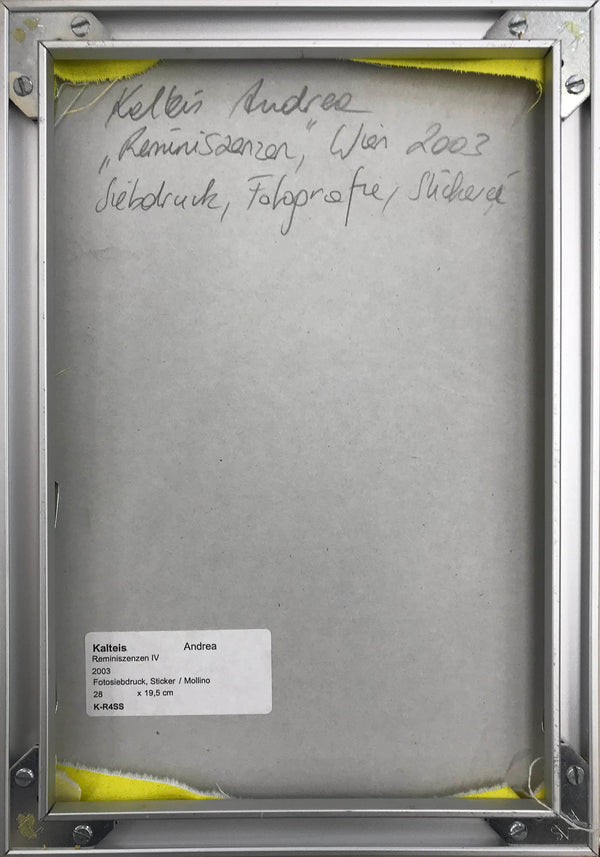 Kalteis Andrea
„Reminiszenzen", Wien 2003
Siebdruck, Fotografie, Stickerei
Kalteis Andrea
Reminiszenzen IV
2003
Fotosiebdruck, Sticker / Mollino
28 x 19,5 cm
K-R4SS